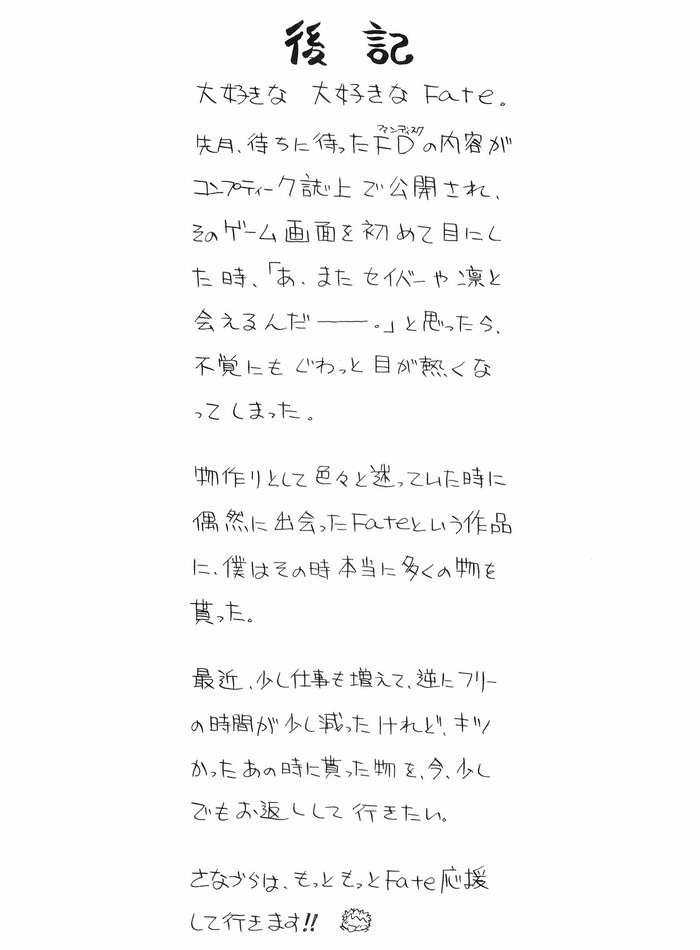 後記
大好きな 大好きな Fate。
先月、待ちに待ったFDの内容が
ファンディスク
コンプティーク誌上で公開され、
そのゲーム画面を初めて目にし
た時、「あ、また セイバーや凛と
会えるんだ――。」と思ったら、
不覚にも ぐわっと 目が熱くな
ってしまった。
物作りとして色々と迷っていた時に
偶然に出会ったFateという作品
に、僕はその時本当に多くの物を
貰った。
最近、少し仕事も増えて、逆にフリー
の時間が少し減ったけれど、キツ
かったあの時に貰った物を、今、少し
でもお返しして行きたい。
さながらは、もっともっとFate応援
して行きます!!